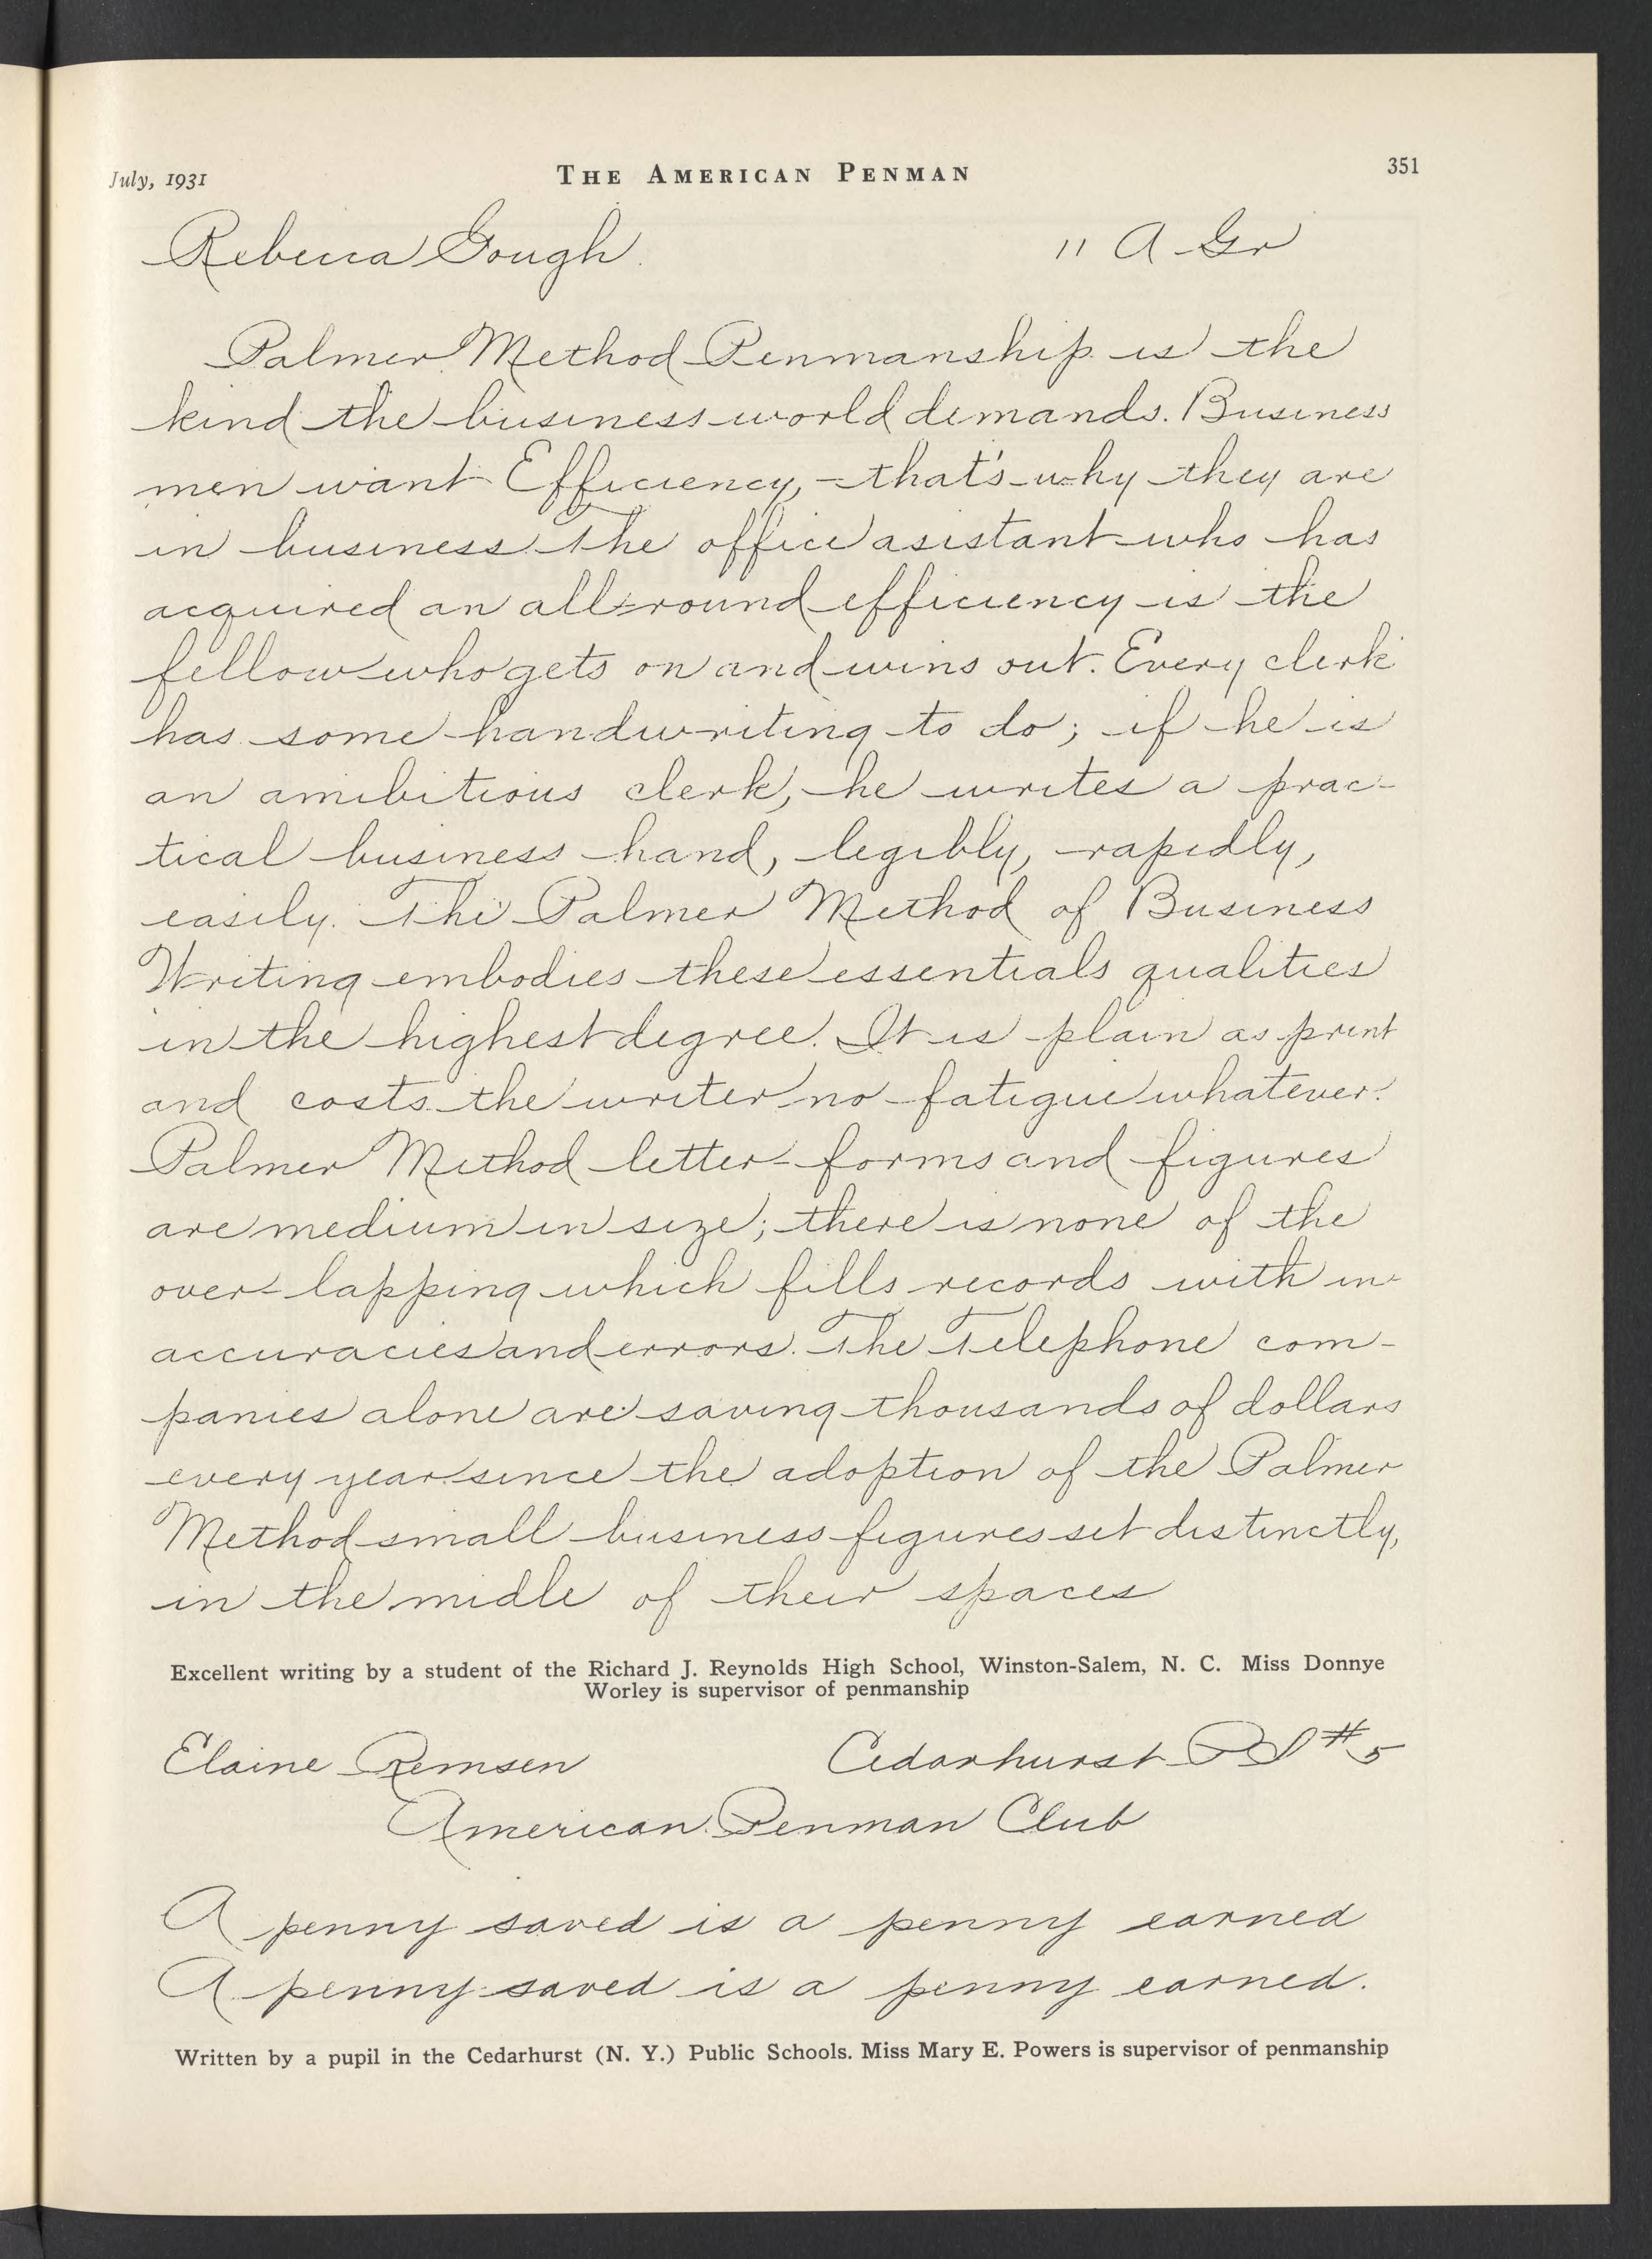 July, 1931 THE AMERICAN PENMAN 351
Rebecca Gough. 11 A Gr
Palmer Method Penmanship is the
kind the business world demands. Business
men want Efficiency, - that's why they are
in business. The office asistant who has
acquired an all-round efficiency is the
fellow who gets on and wins out. Every clerk
has some handwriting to do; if he is
an amibitious clerk, he writes a prac-
tical business hand, legibly, rapidly,
easily. The Palmer Method of Business
Writing embodies these essentials qualities
in the highest degree. It is plain as print
and costs the writer no fatigue whatever.
Palmer Method letter-forms and figures
are medium in size; there is none of the
over-lapping which fills records with in-
accuracies and errors. The Telephone com-
panies alone are saving thousands of dollars
every year since the adoption of the Palmer
Method small business figures set distinctly,
in the midle of their spaces
Excellent writing by a student of the Richard J. Reynolds High School, Winston-Salem, N. C. Miss Donnye
Worley is supervisor of penmanship
Elaine Remsen Cedarhurst P S #5
American Penman Club
A penny saved is a penny earned
A penny saved is a penny earned.
Written by a pupil in the Cedarhurst (N. Y.) Public Schools. Miss Mary E. Powers is supervisor of penmanship